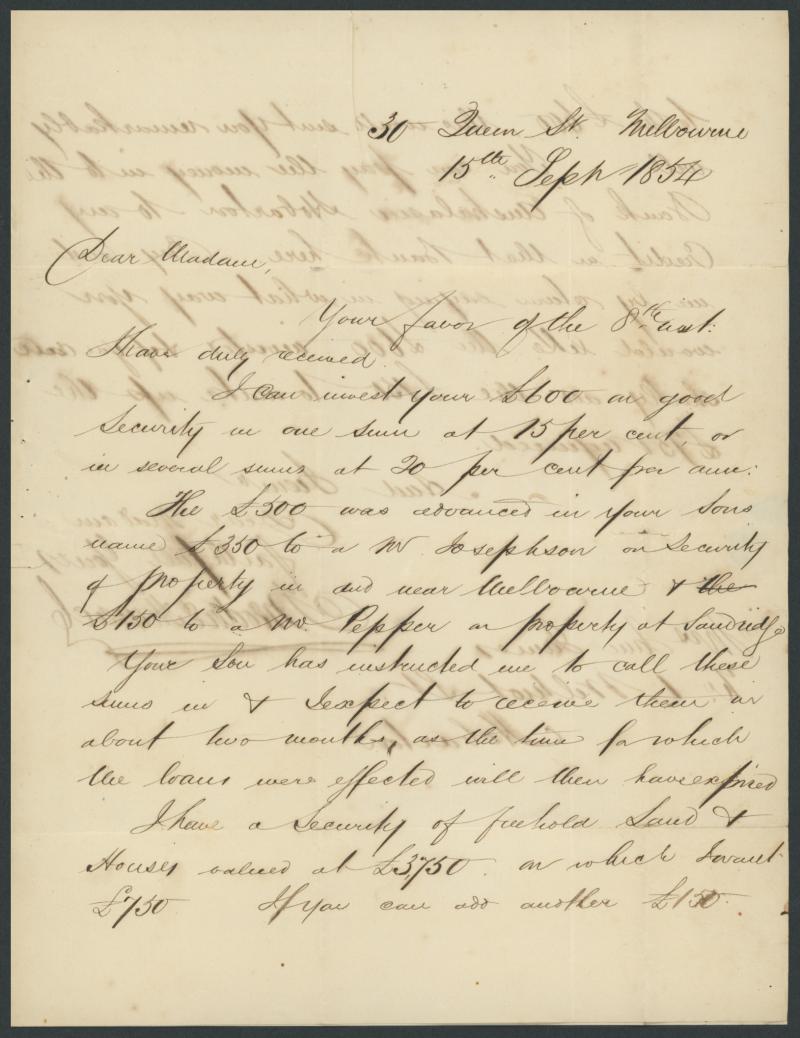 30 Queen St. Melbourne
15th Sept 1854
Dear Madam,
Your favor of the 8th inst:
I have duly received.
I can invest your £600 on good
Security in one sum at 15 per cent, or
in several sums at 20 per cent per ann:
The £500 was advanced in your Sons
name £350 to a Mr. Josephson on Security
of property in and near Melbourne & the
£150 to a Mr. Pepper on property at Sandridge
Your Son has instructed me to call these
sums in & I expect to receive them in
about two months, as the time for which
the loans were effected will then have expired
I have a Security of freehold Land &
Houses valued at £3,750 on which I want
£750 If you can add another £150